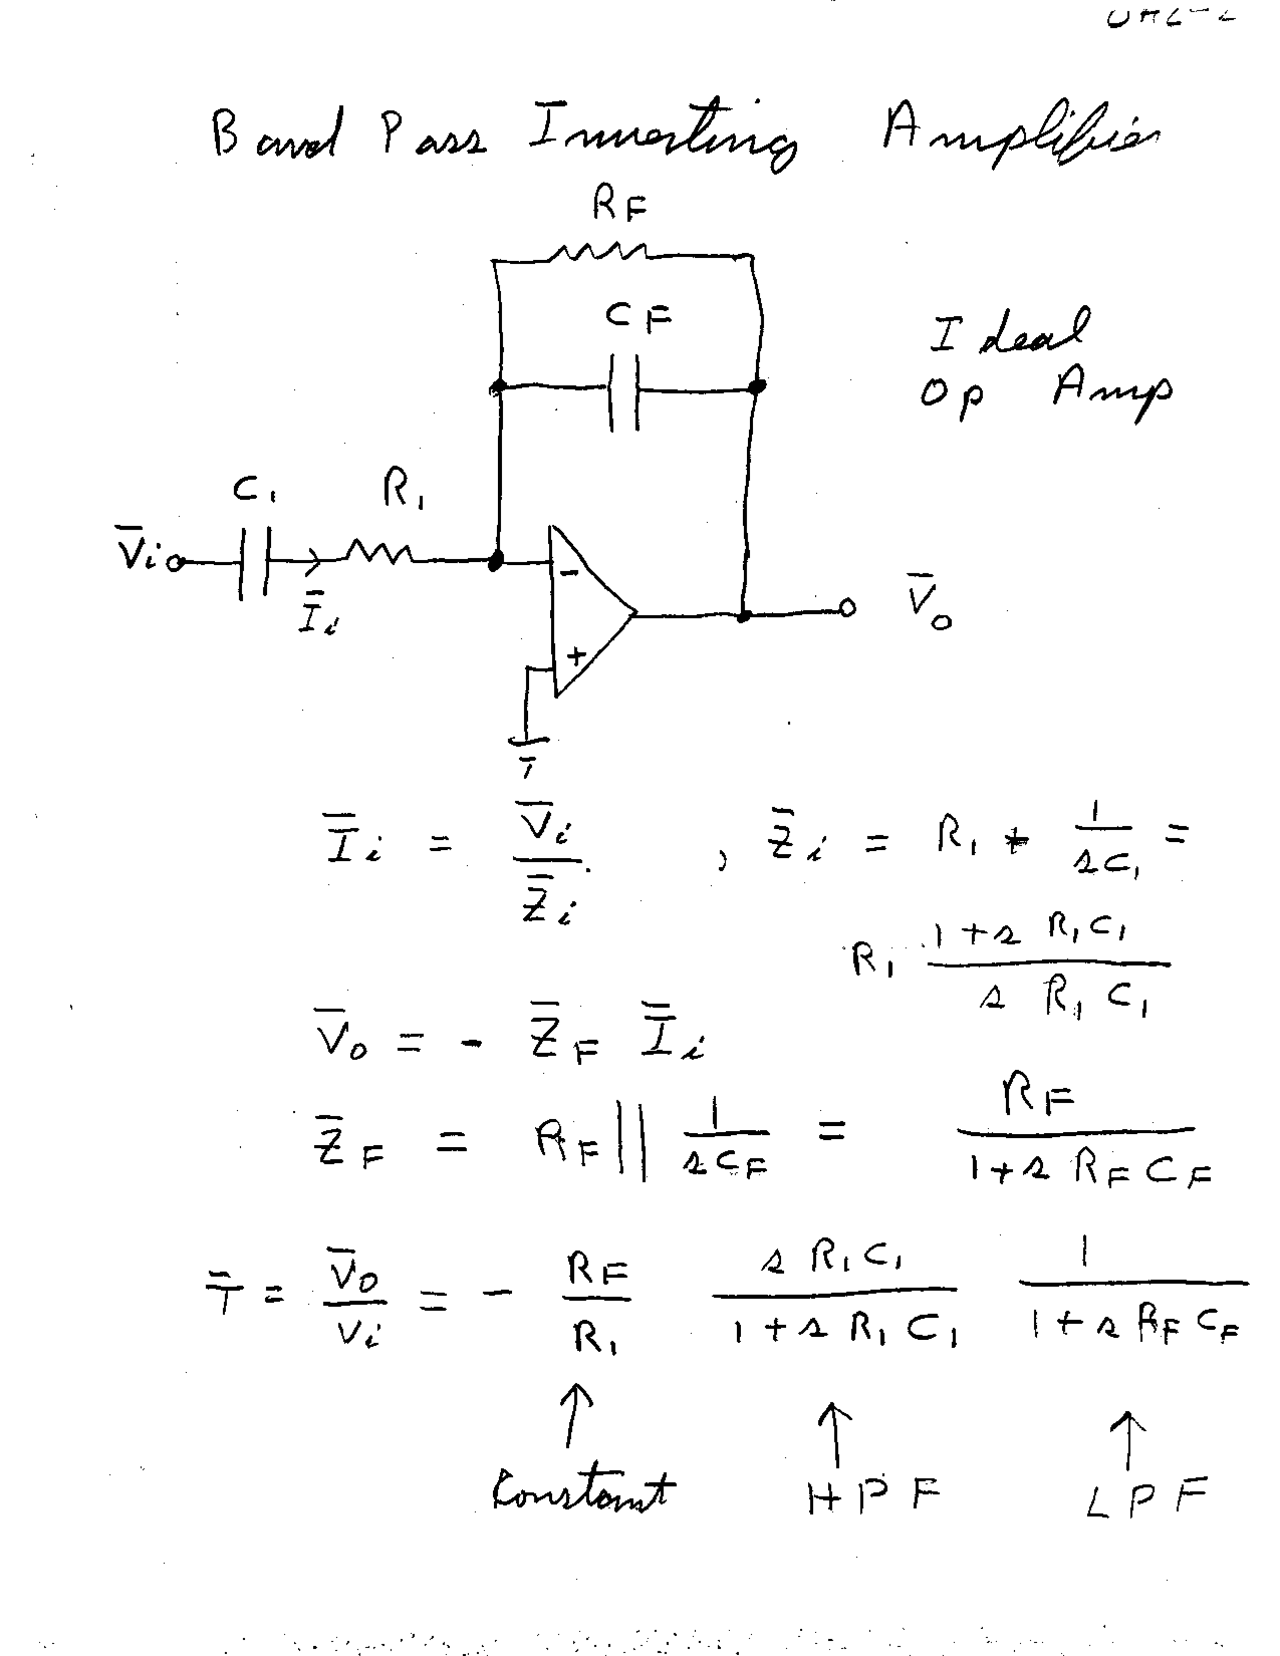 Band Pass Inverting Amplifier
RF
CF
Ideal
Op Amp
C1 R1
V̅i
I̅i
-
+
V̅o
I̅i = V̅i / Z̅i , Z̅i = R1 + 1 / sC1 =
R1 (1 + s R1 C1) / (s R1 C1)
V̅o = - Z̅F I̅i
Z̅F = RF || 1 / sCF = RF / (1 + s RF CF)
T̅ = V̅o / Vi = - RF / R1 s R1 C1 / (1 + s R1 C1) 1 / (1 + s RF CF)
↑ ↑ ↑
Konstant HPF LPF